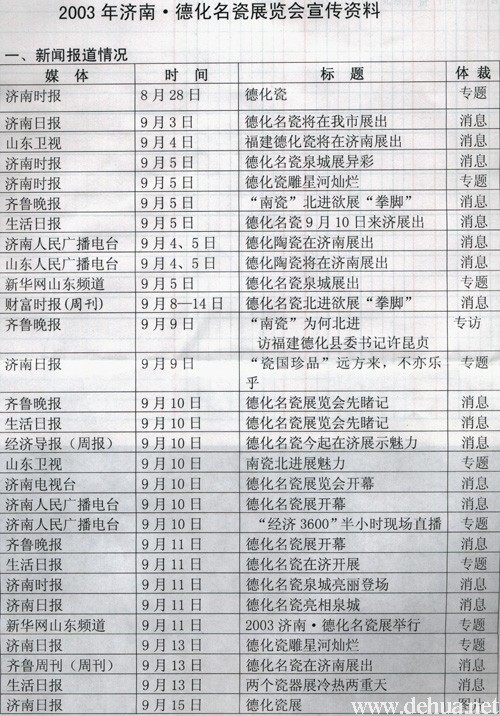 2003年济南·德化名瓷展览会宣传资料
一、新闻报道情况
媒 体 时 间 标 题 体 裁
济南时报 8月28日 德化瓷 专题
济南日报 9月3日 德化名瓷将在我市展出 消息
山东卫视 9月4日 福建德化瓷将在济南展出 消息
济南时报 9月5日 德化名瓷泉城展异彩 消息
济南时报 9月5日 德化瓷雕星河灿烂 专题
齐鲁晚报 9月5日 “南瓷”北进欲展“拳脚” 消息
生活日报 9月5日 德化名瓷9月10日来济展出 消息
济南人民广播电台 9月4、5日 德化陶瓷在济南展出 消息
山东人民广播电台 9月4、5日 德化陶瓷将在济南展出 消息
新华网山东频道 9月5日 德化名瓷泉城展出 专题
财富时报(周刊) 9月8—14日 德化名瓷北进欲展“拳脚” 消息
齐鲁晚报 9月9日 “南瓷”为何北进 专访
访福建德化县委书记许昆贞
济南日报 9月9日 “瓷国珍品”远方来，不亦乐 专题
乎
齐鲁晚报 9月10日 德化名瓷展览会先睹记 消息
生活日报 9月10日 德化名瓷展览会先睹记 消息
经济导报（周报） 9月10日 德化名瓷今起在济展示魅力 消息
山东卫视 9月10日 南瓷北进展魅力 专题
济南电视台 9月10日 德化名瓷展览会开幕 消息
济南人民广播电台 9月10日 德化名瓷展开幕 消息
济南人民广播电台 9月10日 “经济3600”半小时现场直播 专题
齐鲁晚报 9月11日 德化名瓷展开幕 消息
生活日报 9月11日 德化名瓷在济开展 专题
济南时报 9月11日 德化名瓷泉城亮丽登场 消息
济南日报 9月11日 德化名瓷亮相泉城 消息
新华网山东频道 9月11日 2003济南·德化名瓷展举行 专题
济南日报 9月13日 德化瓷雕星河灿烂 专题
齐鲁周刊（周刊） 9月13日 德化名瓷在济南展出 消息
生活日报 9月13日 两个瓷器展冷热两重天 消息
济南日报 9月15日 德化瓷展 图片
www.dehua.net